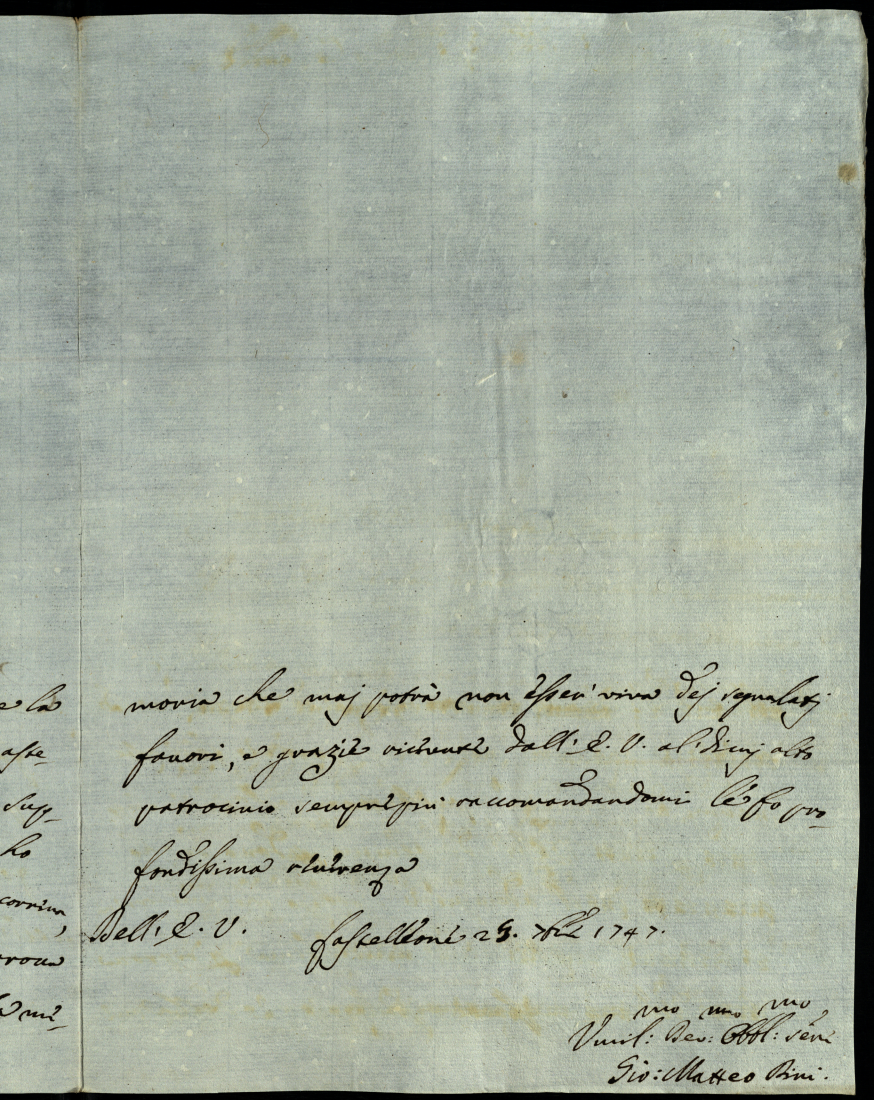 e la
aste-
sup-
ho
corrim,
rova
mi-
moria che maj potrà non esser viva dej segnalatj
favori, e grazie ricevute dall'. E. V. al' di cuj alto
patrocinio sempre più raccomandandomi le fo pro-
fondissima riverenza
Dell'. E. V. Castelleone 29. 7bre 1747.
mo mo mo
Umil: Dev: Obbl: Serv
Gio: Matteo Bini.